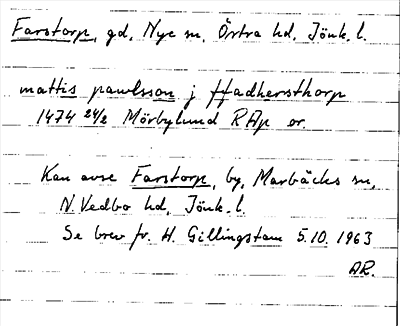 Farstorp, gd, Nye sn, Östra hd, Jönk. l.
mattis pawlsson j ffadhersthorp
1474 24/2 Mörbylund RAp or.
Kan avse Farstorp, by, Marbäcks sn,
N. Vedbo hd, Jönk. l.
Se brev fr. H. Gillingstam 5.10. 1963
AR.